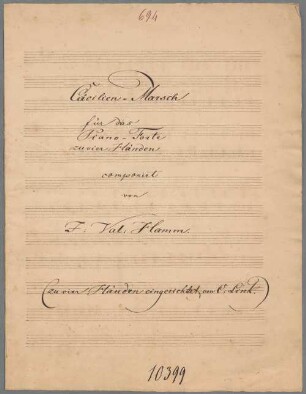 694
Cäcilien-Marsch
für das
Piano-Forte
zu vier Händen
componirt
von
F. Val. Hamm.
(zu vier Händen eingerichtet von C. Link.)
10399